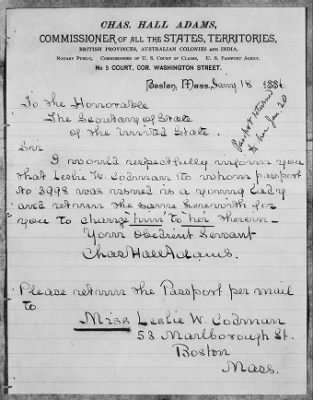 CHAS. HALL ADAMS,
COMMISSIONER OF ALL THE STATES, TERRITORIES,
BRITISH PROVINCES, AUSTRALIAN COLONIES AND INDIA,
NOTARY PUBLIC, COMMISSIONER OF U. S. COURT OF CLAIMS, U. S. PASSPORT AGENT.
No 5 COURT, COR. WASHINGTON STREET.
Boston, Mass. Jany 18 188
To the Honorable
The Secretary of State
of the United State.
Passport returned
Jan 20
Sir
I would respectfully inform you
that Leslie W. Codman to whom passport
No 3998 was issued is a young Lady
and return the same herewith for
you to change him to her therein—
Your Obedient Servant
Chas Hall Adams.
Please return the Passport per mail
to
Miss Leslie W. Codman
53 Marlborough St.
Boston
Mass.